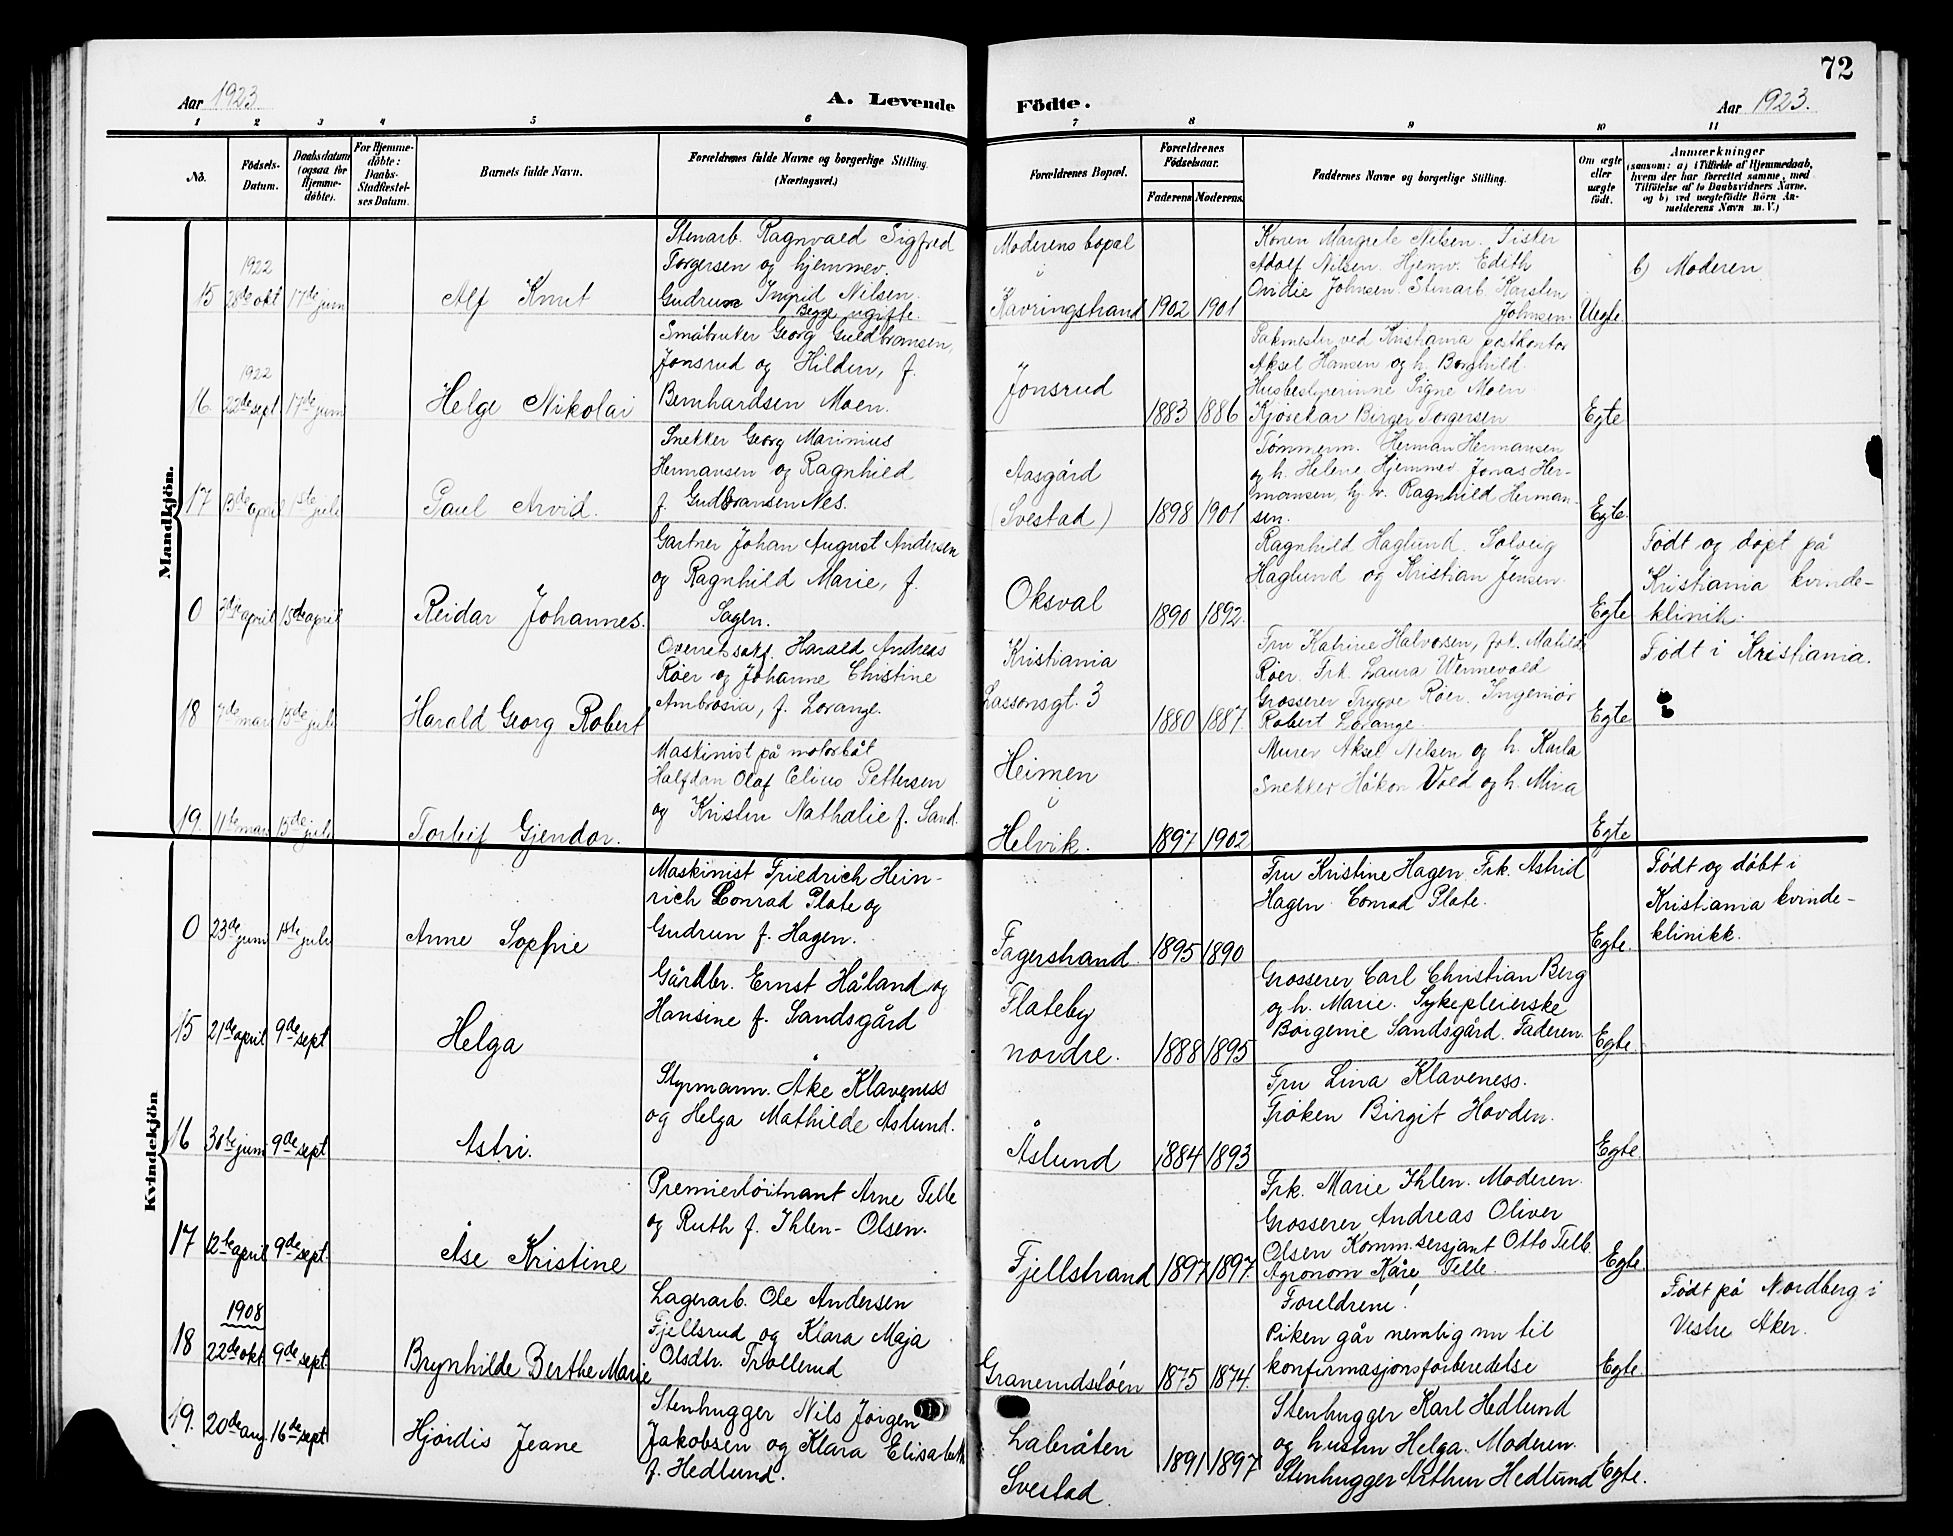 72
Aar 1923.
A. Levende Födte.
Aar 1923.
1 2 3 4 5 6 7 8 9 10 11
No.
Födsels-Datum.
Daabsdatum (ogsaa for Hjemmedöbte).
For Hjemmedöbte: Daabs-Stadfæstelses Datum.
Barnets fulde Navn.
Forældrenes fulde Navne og borgerlige Stilling.
(Næringsvei.)
Forældrenes Bopæl.
Forældrenes Födselsaar.
Faderens Moderens.
Faddernes Navne og borgerlige Stilling.
Om ægte eller uægte født.
Anmærkninger
(saasom: a) i Tilfælde af Hjemmedaab, hvem der har forrettet samme, med Tilföielse af to Daabsvidners Navne. og b) ved uægtefødte Börn Anmelderens Navn m. V.)
Mandkjön.
15
1922
28de okt
17de juni
Alf Knut
Stenarb. Ragnvald Sigfred
Torgersen og hjemmev.
Gudrun Ingrid Nilsen.
Begge ugifte.
Moderens bopal
Kavringstrand
1902 1901
Konen Margrete Nilsen. Fisker
Adolf Nilsen. Hjemv. Edith
Ovidie Johnsen. Stenarb. Karsten
Johnsen.
Uegte.
b) Moderen
16.
1922
22de sept
17de juni
Helge Nikolai
Småbruker Georg Guldbransen,
Jonsrud og Hildur, f.
Bernhardsen Moen.
Jonsrud
1883 1886
Pakmester ved Kristiania postkontor
Aksel Hansen og h. Borghild.
Husbestyrerinne Signe Moen
Kjøsekar Birger Torgersen
Egte
17
13de april
1ste juli
Paul Arvid.
Snekker Georg Marinius
Hermansen og Ragnhild
f. Gudbransen Nes.
Aasgård
(Svestad)
1898 1901
Tømmerm. Herman Hermansen
og h. Helene, Hjemmev. Jonas Her-
mansen, hj. v. Ragnhild Herman-
sen.
Egte.
0
3dje april
15de april
Reidar Johannes.
Gartner Johan August Andersen
og Ragnhild Marie, f.
Sagen.
Oksval
1890 1892.
Ragnhild Haglund. Solveig
Haglund og Kristian Jensen.
Egte
Født og døpt på
Kristiania kvinde-
klinik.
18
7de mars
15de juli
Harald Georg Robert
Overretssakf. Harald Andreas
Röer og Johanne Christine
Ambrosia, f. Lorange.
Kristiania
Lassonsgt. 3
1880 1887.
Fru Katrine Halvorsen, frk. Matilde
Röer. Frk. Laura Wennevold
Grosserer Trygve Röer. Ingeniør
Robert Lorange.
Egte
Født i Kristiania.
19.
11te mars
15de juli
Torleif Gjendor.
Maskinist på motorbåt
Halfdan Olaf Celius Pettersen
og Kristin Nathalie f. Sand.
Heimen
Helvik.
1897 1902
Murer Aksel Nilsen og h. Karla
Snekker Håkon Vold og h. Mina
Egte
Kvindekjön
0
23de juni
1ste juli
Anne Sophie
Maskinist Friedrich Hein-
rich Conrad Plate og
Gudrun f. Hagen.
Fagerstrand.
1895 1890
Fru Kristine Hagen. Frk. Astrid
Hagen. Conrad Plate.
Egte.
Født og döbt i
Kristiania kvinde-
klinikk.
15
21de april
9de sept
Helga
Gårdbr. Ernst Håland og
Hansine f. Sandsgård
Flateby
nordre.
1888 1895
Grosserer Carl Christian Berg
og h. Marie. Sykepleierske
Börgenie Sandsgård. Faderen.
Egte.
16
30te juni
9de sept
Astri.
Styrmann Åke Klaveness
og Helga Mathilde Åslund.
Åslund
1884 1893
Fru Lina Klaveness.
Frøken Birgit Hovden.
Egte.
17
12te april
9de sept.
Åse Kristine
Premierløitnant Arne Telle
og Ruth f. Ihlen-Olsen.
Fjellstrand
1897 1897.
Frk. Marie Ihlen. Moderen.
Grosserer Andreas Oliver
Olsen Komm.sersjant Otto Telle.
Agronom Kåre Telle.
Egte
18
1908
22de okt.
9de sept.
Brynhilde Berthe Marie
Lagerarb. Ole Andersen
Fjellsrud og Klara Maja
Olsdtr. Trollerud
Granerudsløen
1875 1874.
Foreldrene!
Piken går nemlig nu til
konfirmasjonsforberedelse
Egte.
Født på Nordberg i
Vestre Aker.
19.
20de aug
16de sept
Hjørdis Jeane
Stenhugger Nils Jörgen
Jakobsen og Klara Elisabeth
f. Hedlund.
Labråten
Svestad.
1891 1897
Stenhugger Karl Hedlund
og hustru Helga. Moderen.
Stenhugger Arthur Hedlund
Egte.